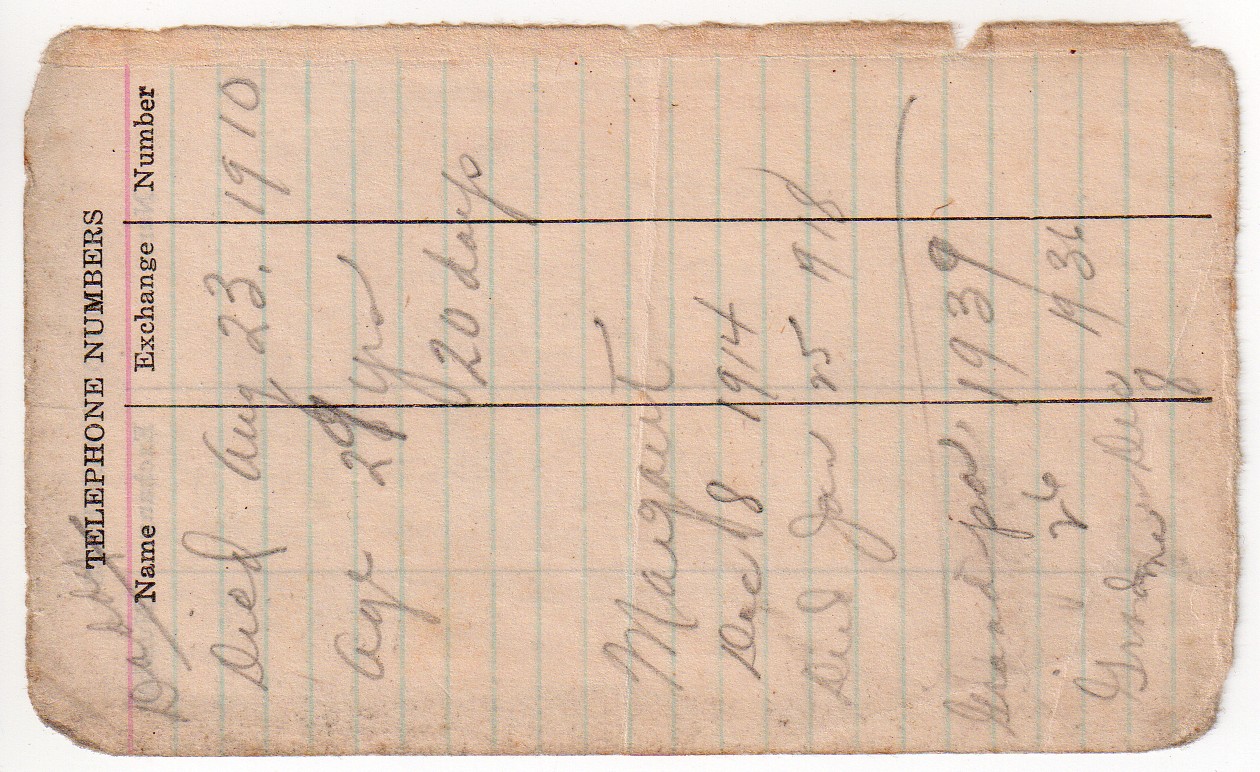 TELEPHONE NUMBERS
Name Exchange Number
Daddy
Died Aug 23. 1910
Age 29 yrs
20 days
Margaret
Dec 18 1914
Died Jan 25 1918
Grandpa 1939
26 1936
Grandma Dec